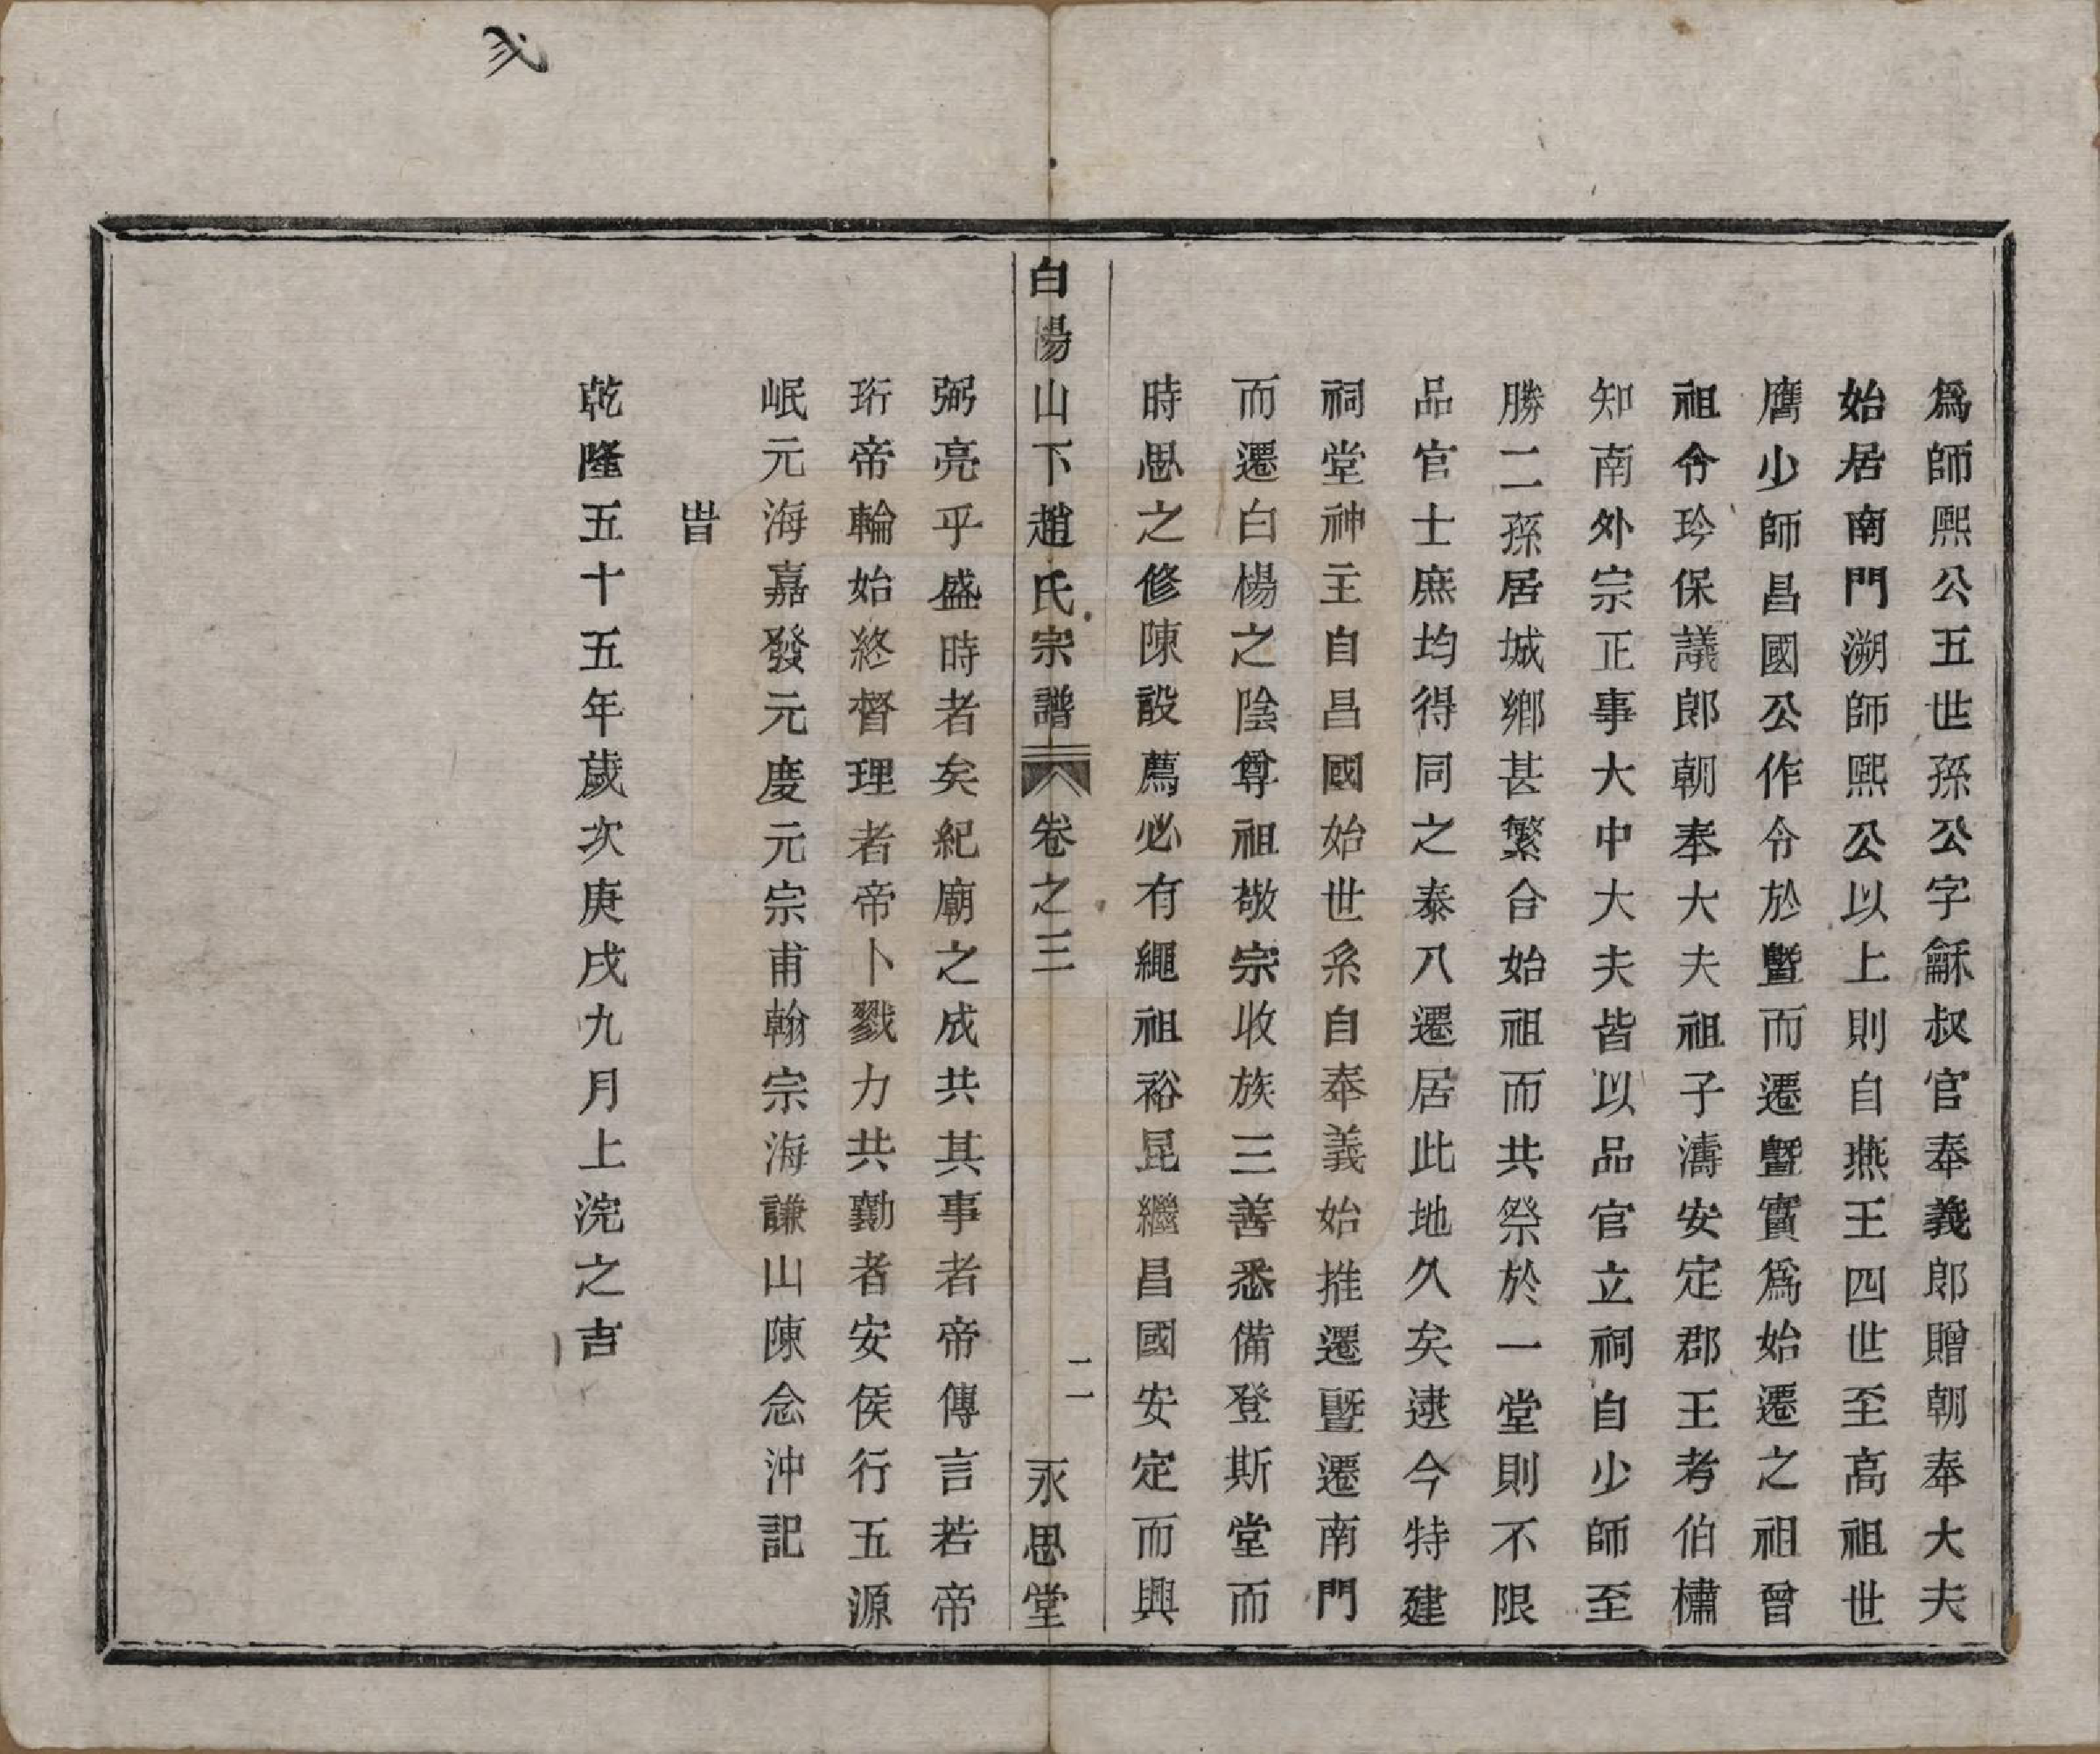 爲師熙公五世孫公字龢叔官奉義郎贈朝奉大夫
始居南門溯師熙公以上則自燕王四世至高祖世
膺少師昌國公作令於曁而遷曁實爲始遷之祖曾
祖令玲保議郎朝奉大夫祖子濤安定郡王考伯橚
知南外宗正事大中大夫皆以品官立祠自少師至
勝二孫居城鄉甚繁合始祖而共祭於一堂則不限
品官士庶均得同之泰八遷居此地久矣逮今特建
祠堂神主自昌國始世系自奉義始推遷曁遷南門
而遷白楊之陰尊祖敬宗收族三善悉備登斯堂而
時思之修陳設薦必有繩祖裕昆繼昌國安定而興
白陽山下趙氏宗譜 卷之三 二 永思堂
弼亮乎盛時者矣紀廟之成共其事者帝傳言若帝
珩帝輪始終督理者帝卜戮力共勷者安俟行五源
岷元海嘉發元慶元宗甫翰宗海謙山陳念沖記
旹
乾隆五十五年歲次庚戌九月上浣之吉
弍